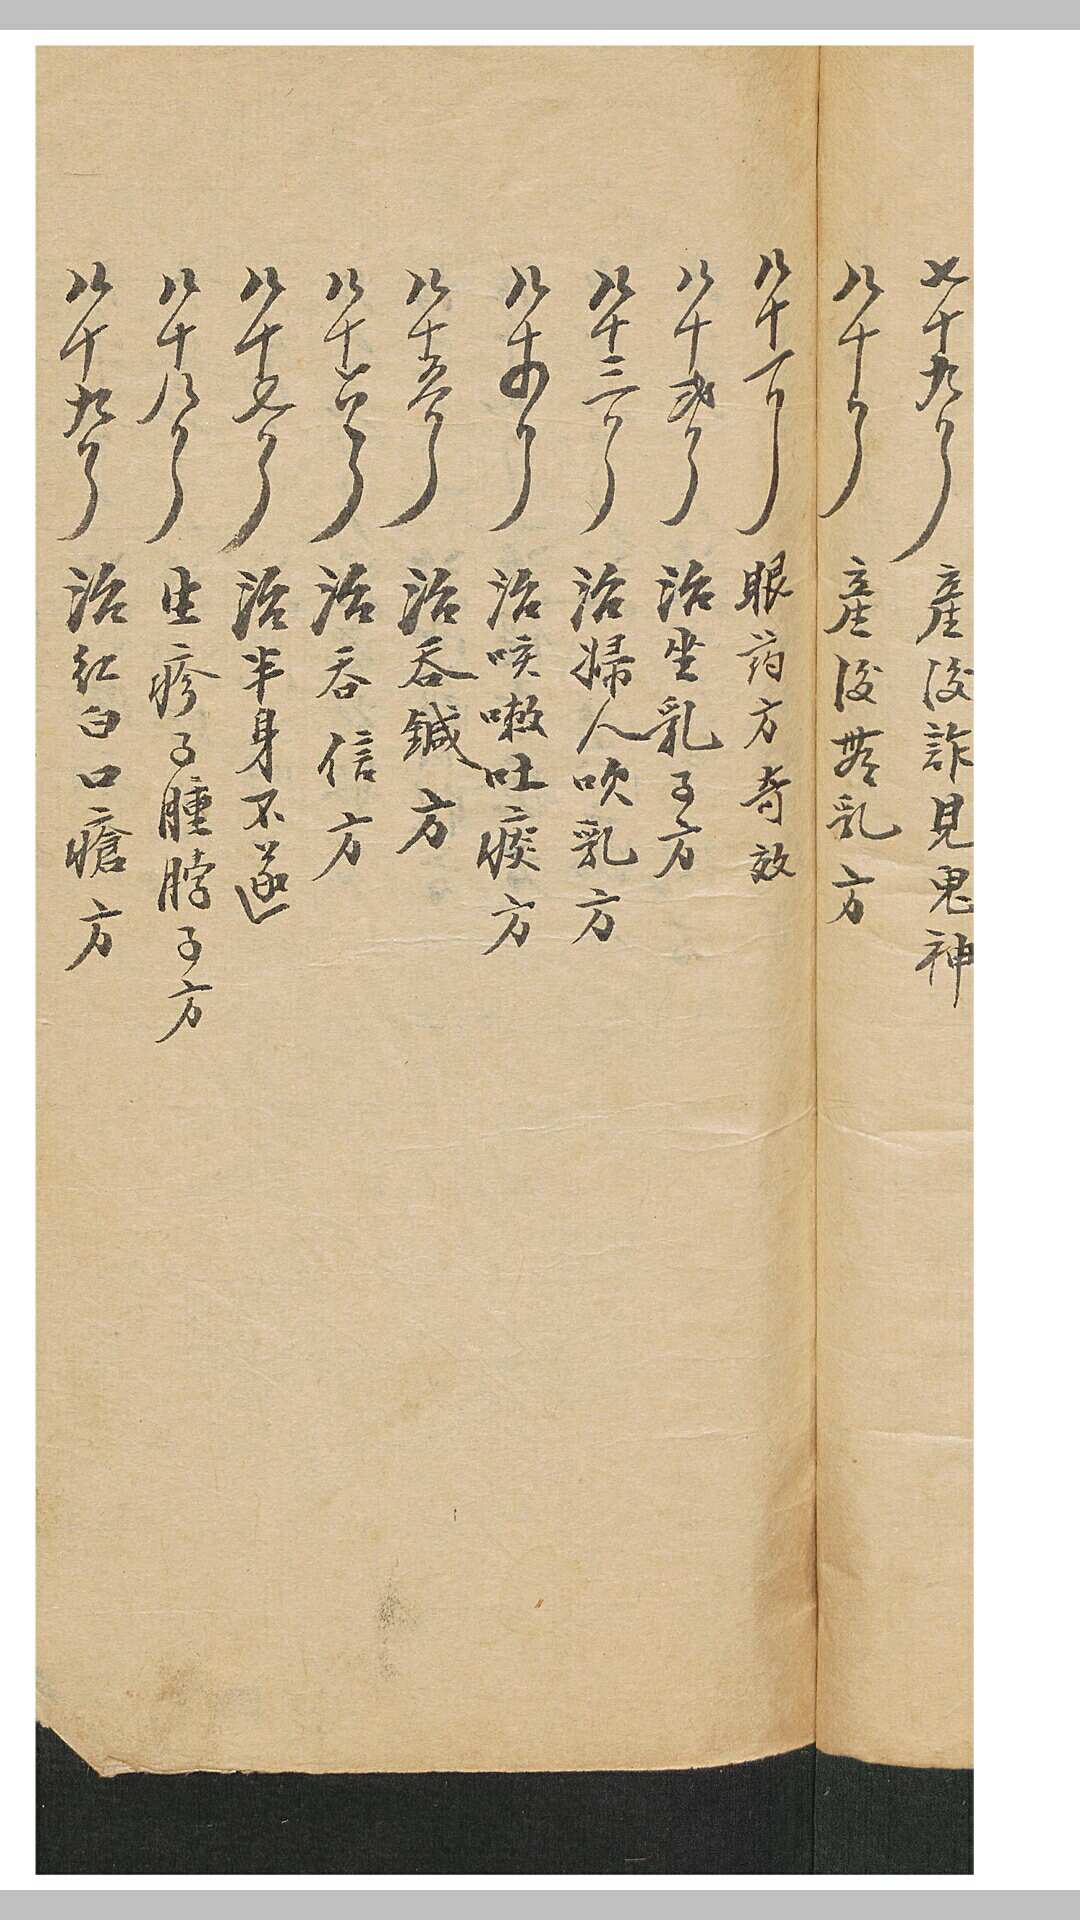 七十九 產後詐見鬼神
八十 產後無乳方
八十一 眼药方奇效
八十弍 治坐乳子方
八十三 治婦人吹乳方
八十四 治咳嗽吐痰方
八十五 治吞鍼方
八十六 治吞信方
八十七 治半身不遂
八十八 生疹子腫脖子方
八十九 治红白口瘡方